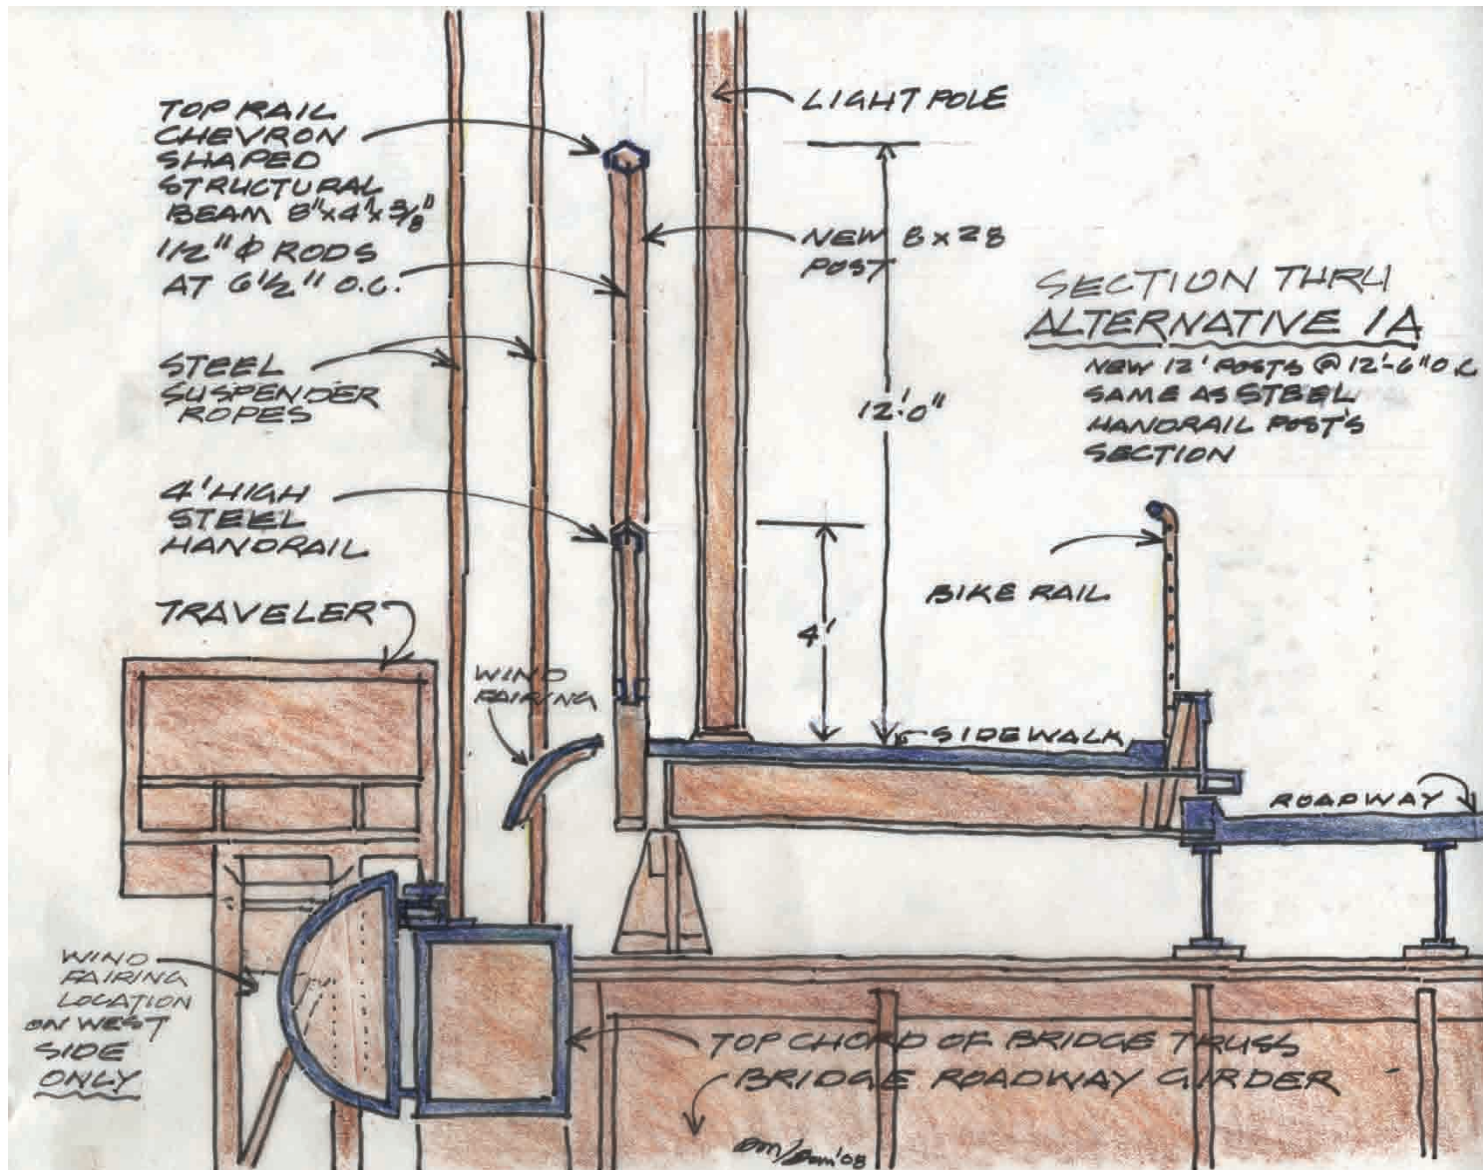 TOP RAIL
CHEVRON
SHAPED
STRUCTURAL
BEAM 8"x4"x3/8"
1/2" Φ RODS
AT 6 1/2" O.C.
STEEL
SUSPENDER
ROPES
4' HIGH
STEEL
HANDRAIL
TRAVELER
WIND
FAIRING
WIND
FAIRING
LOCATION
ON WEST
SIDE
ONLY
LIGHT POLE
NEW 8x28
POST
12'.0"
4'
SECTION THRU
ALTERNATIVE 1A
NEW 12' POSTS @ 12'-6" O.C
SAME AS STEEL
HANDRAIL POST'S
SECTION
BIKE RAIL
SIDEWALK
ROADWAY
TOP CHORD OF BRIDGE TRUSS
BRIDGE ROADWAY GIRDER